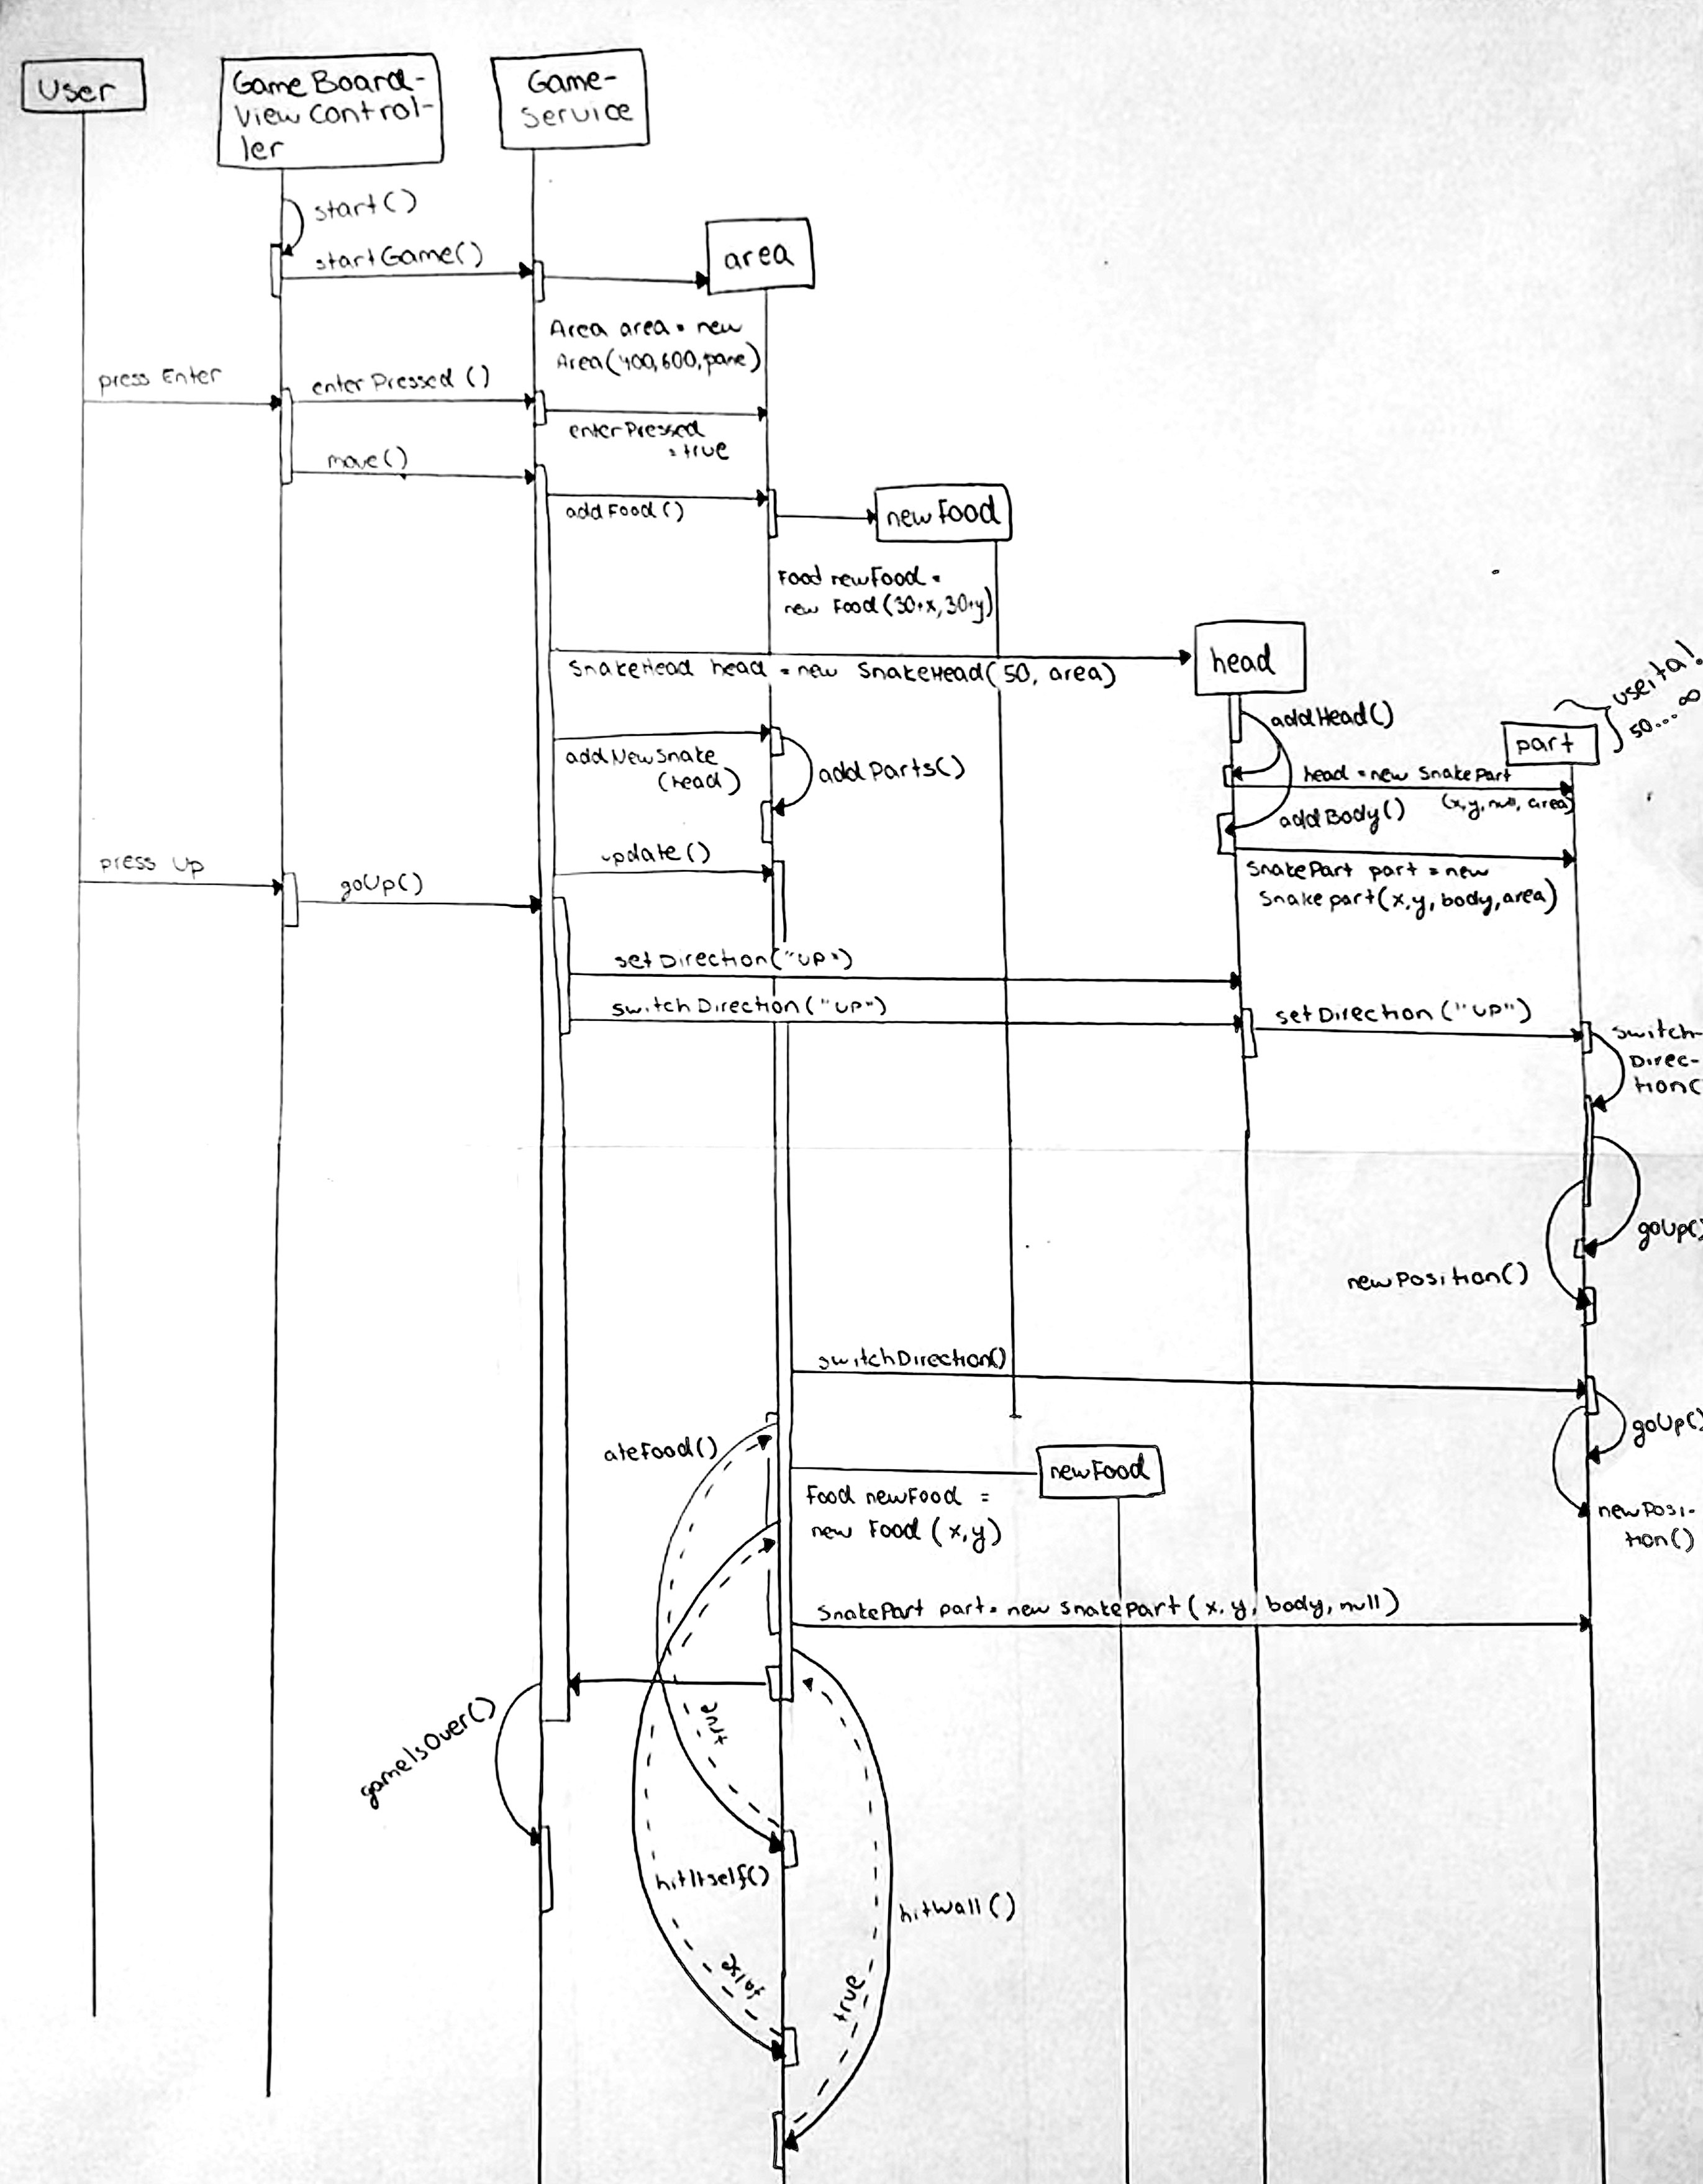 User
GameBoard-
ViewControl-
ler
Game-
Service
start()
startGame()
area
Area area = new
Area(400,600,pane)
press Enter
enterPressed ()
enterPressed
= true
move()
addFood()
newFood
Food newFood =
new Food(30+x,30+y)
SnakeHead head = new SnakeHead(50, area)
head
useita!
50...∞
part
addHead()
addNewSnake
(head)
addParts()
head = new SnakePart
(x,y,null, area)
addBody()
update()
press Up
goUp()
SnakePart part = new
Snakepart(x,y, body,area)
setDirection("UP")
switchDirection("UP")
setDirection ("UP")
switch-
Direc-
tion(
goUp()
newPosition()
switchDirection()
goUp()
ateFood()
newFood
Food newFood =
new Food (x,y)
newPosi-
tion()
SnakePart part = new SnakePart (x, y, body, null)
true
gameIsOver()
hitItself()
hitWall()
false
true